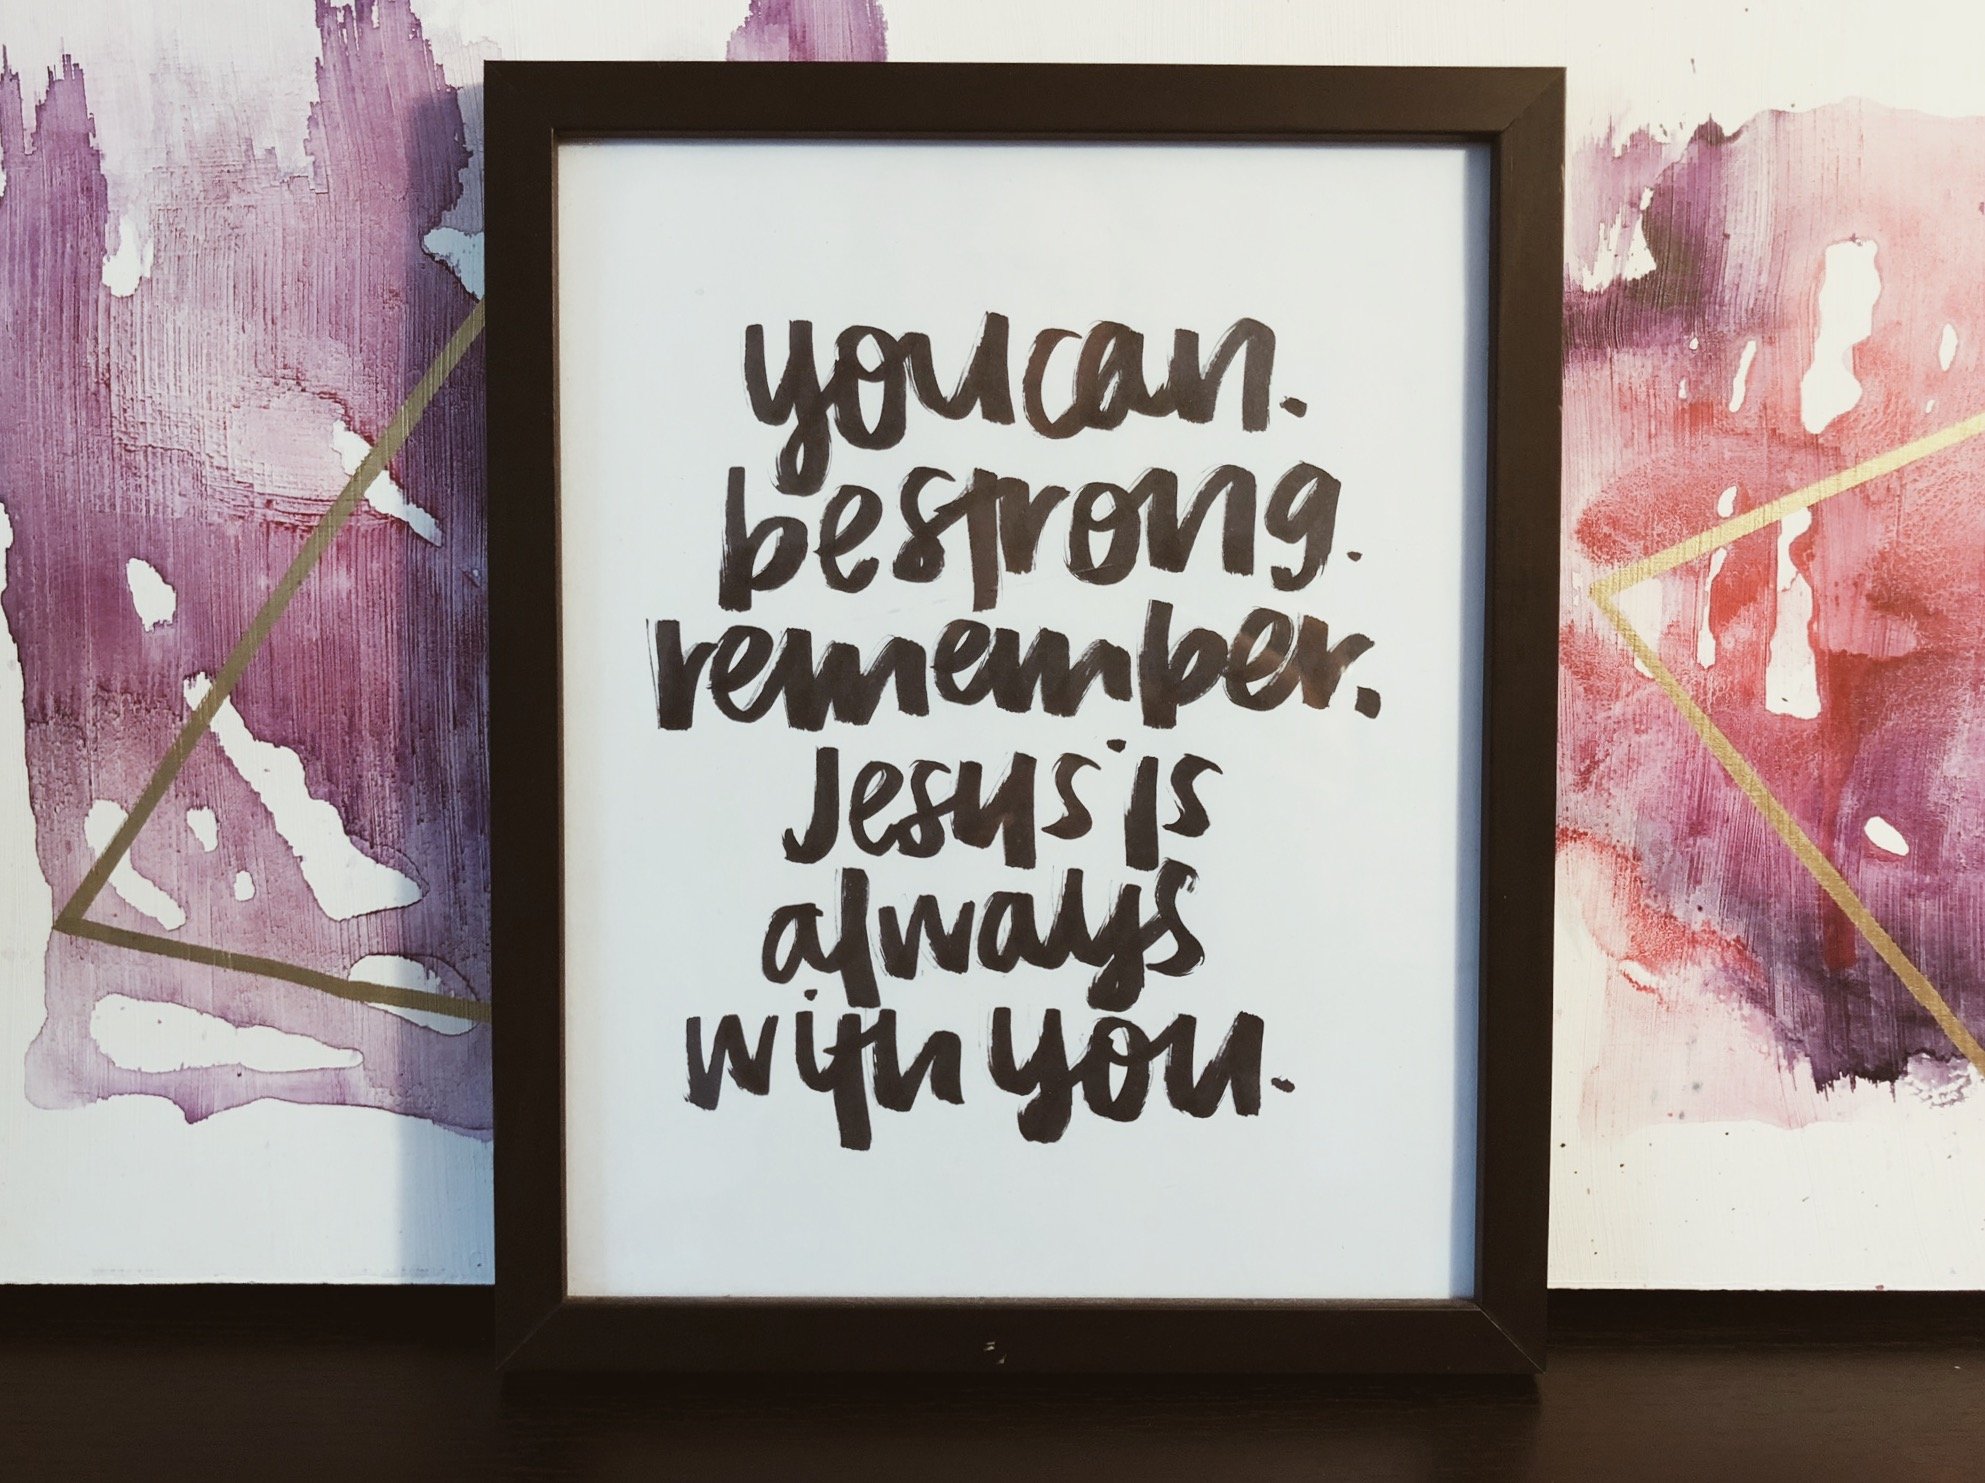 you can.
be strong.
remember.
Jesus is
always
with you.